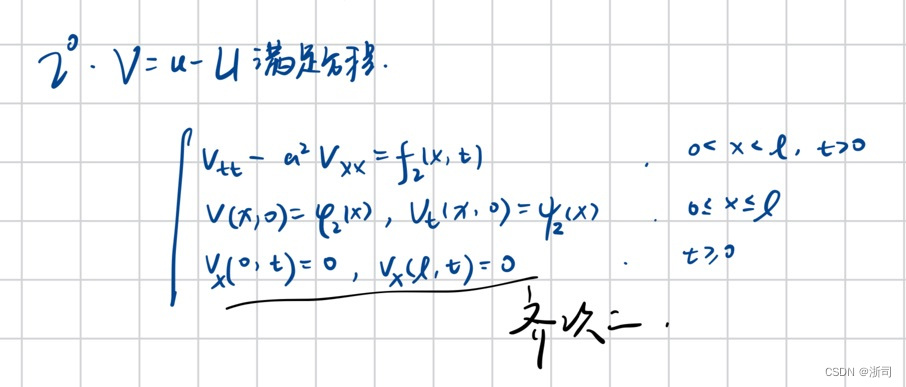 2⁰. V=u-U 满足方程.
V_tt - a² V_xx = f₂(x, t) . 0< x < l, t>0
V(x,0)=φ₂(x), V_t(x, 0)=ψ₂(x) . 0≤ x ≤ l
V_x(0, t)=0, V_x(l, t)=0 . t≥0
齐次二.
CSDN @浙司